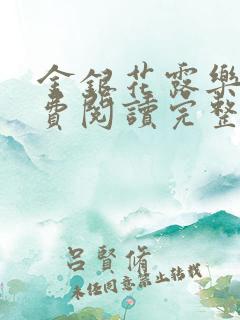 金銀花露樂
費閱讀完整
呂賢脩
未经同意禁止转载